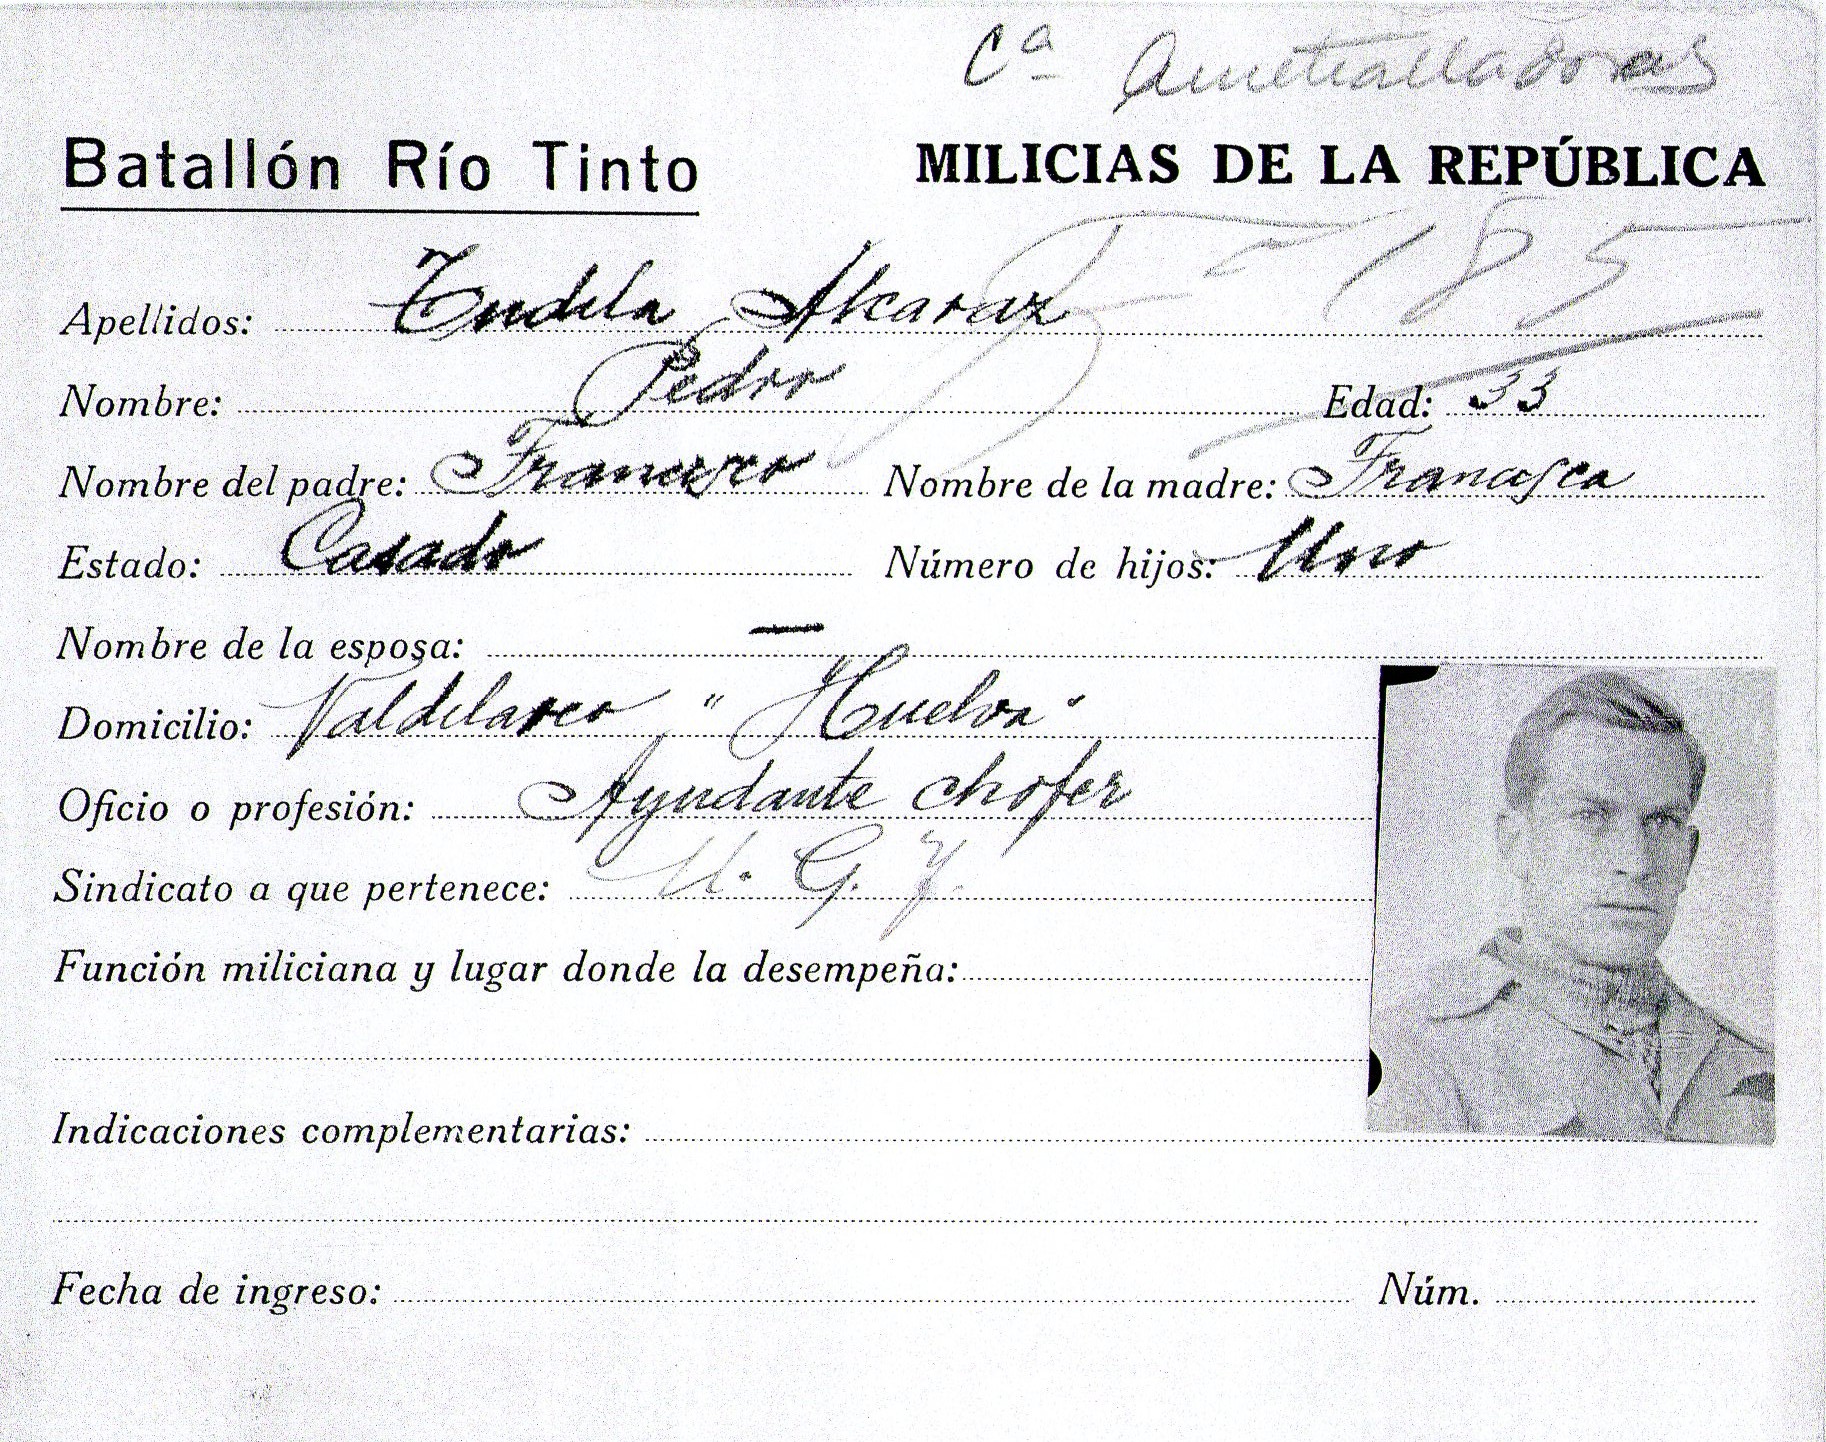 Cª Ametralladoras
Batallón Río Tinto MILICIAS DE LA REPÚBLICA
185
Apellidos: Tudela Alcaraz
Nombre: Pedro Edad: 33
Nombre del padre: Francisco Nombre de la madre: Francisca
Estado: Casado Número de hijos: Uno
Nombre de la esposa: —
Domicilio: Valdelarco "Huelva"
Oficio o profesión: Ayudante chofer
Sindicato a que pertenece: U. G. T.
Función miliciana y lugar donde la desempeña:
Indicaciones complementarias:
Fecha de ingreso: Núm.